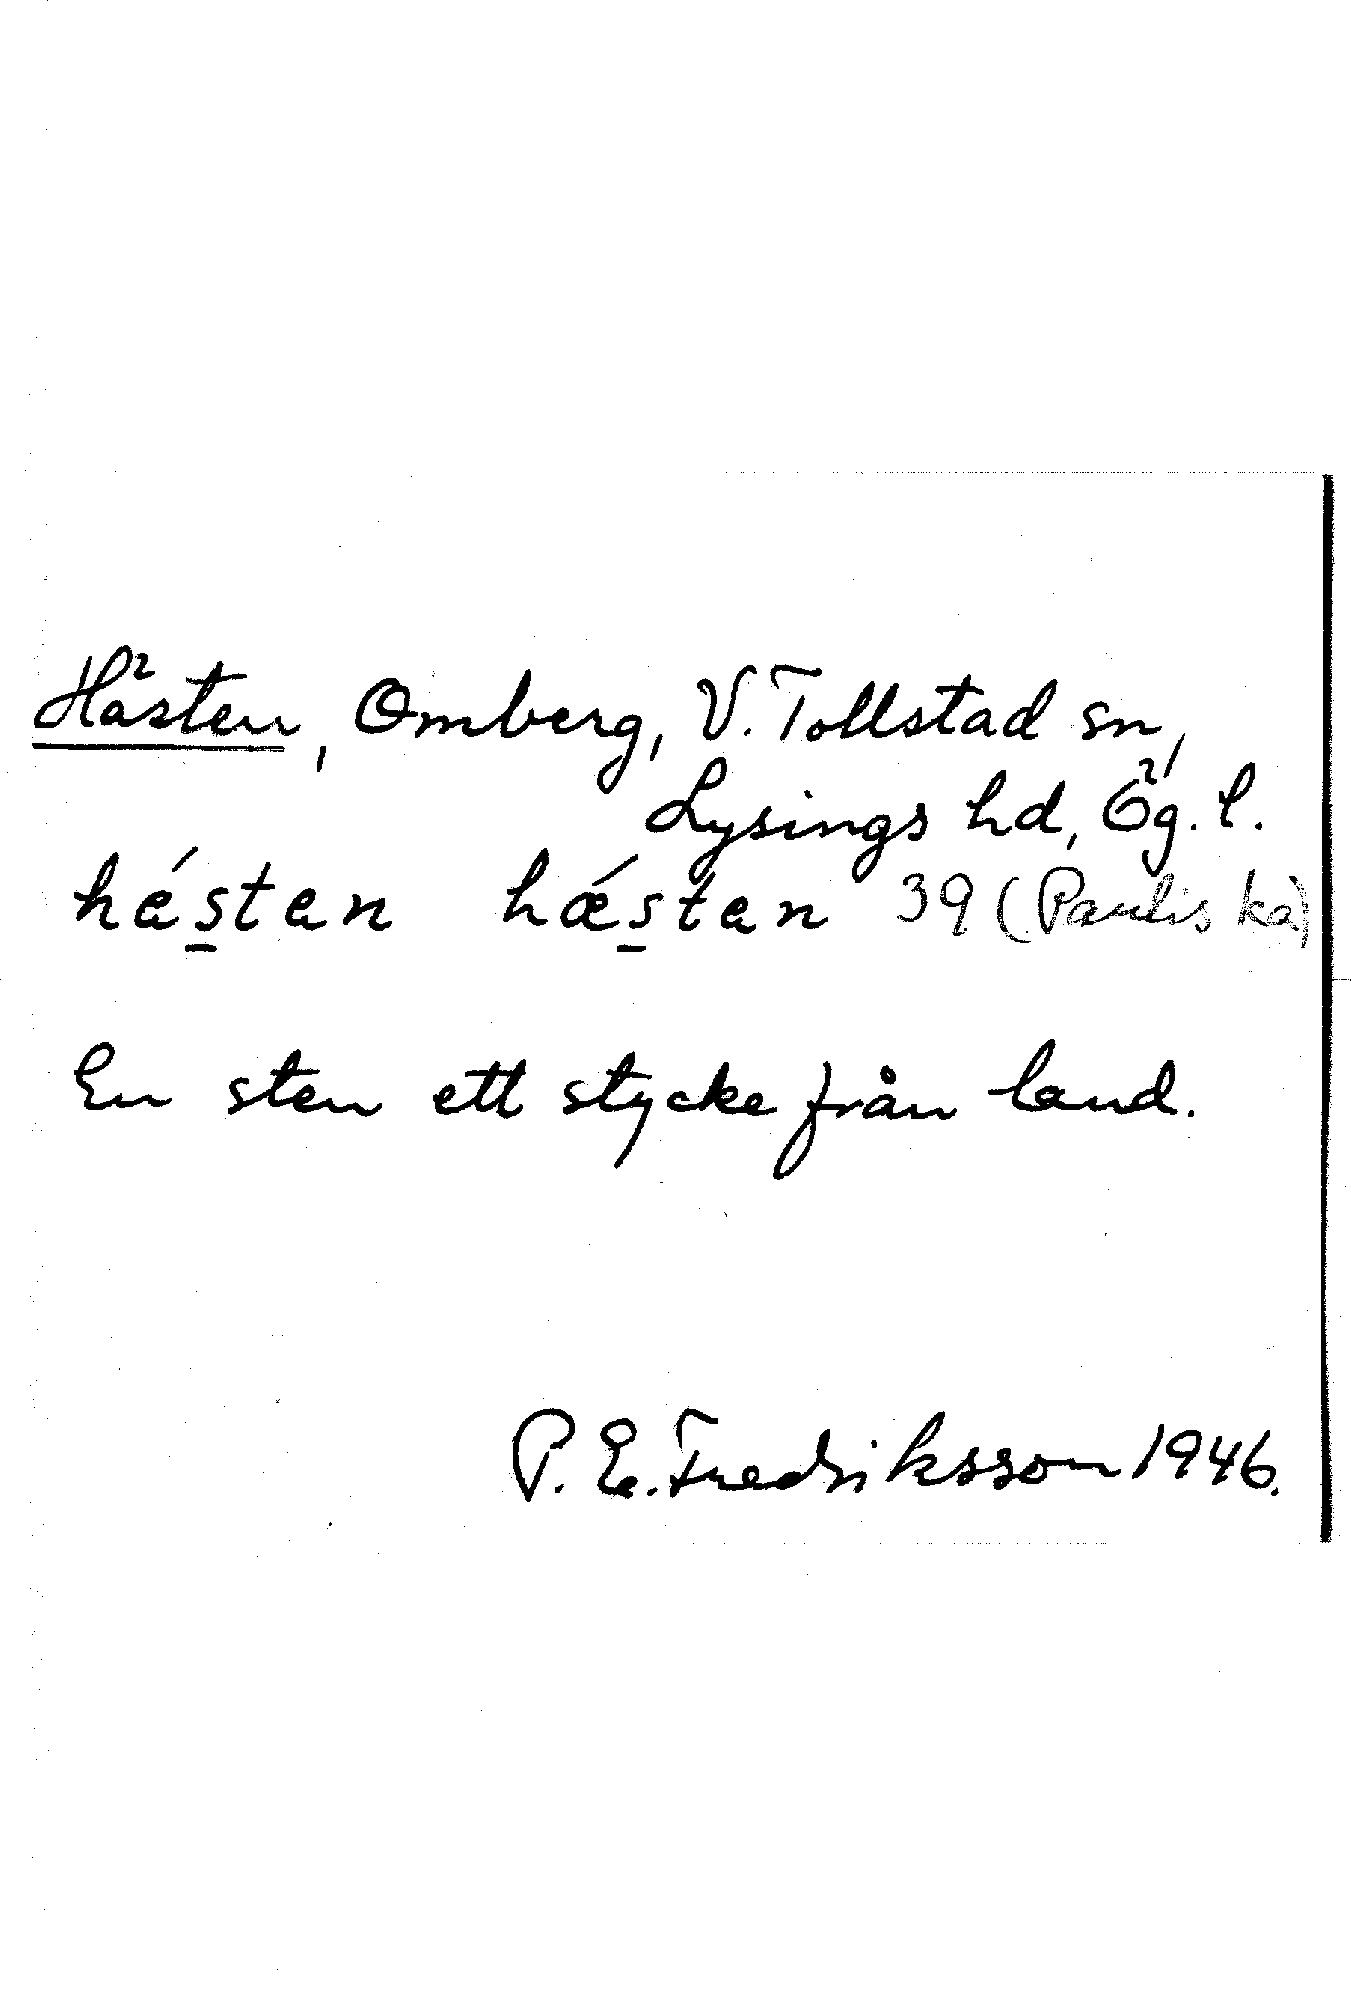 Hästen, Omberg, V. Tollstad sn,
Lysings hd, Ög. l.
hás̱tan hǽs̱tan 39 (Paulis ka)
En sten ett stycke från land.
P. E. Fredriksson 1946.